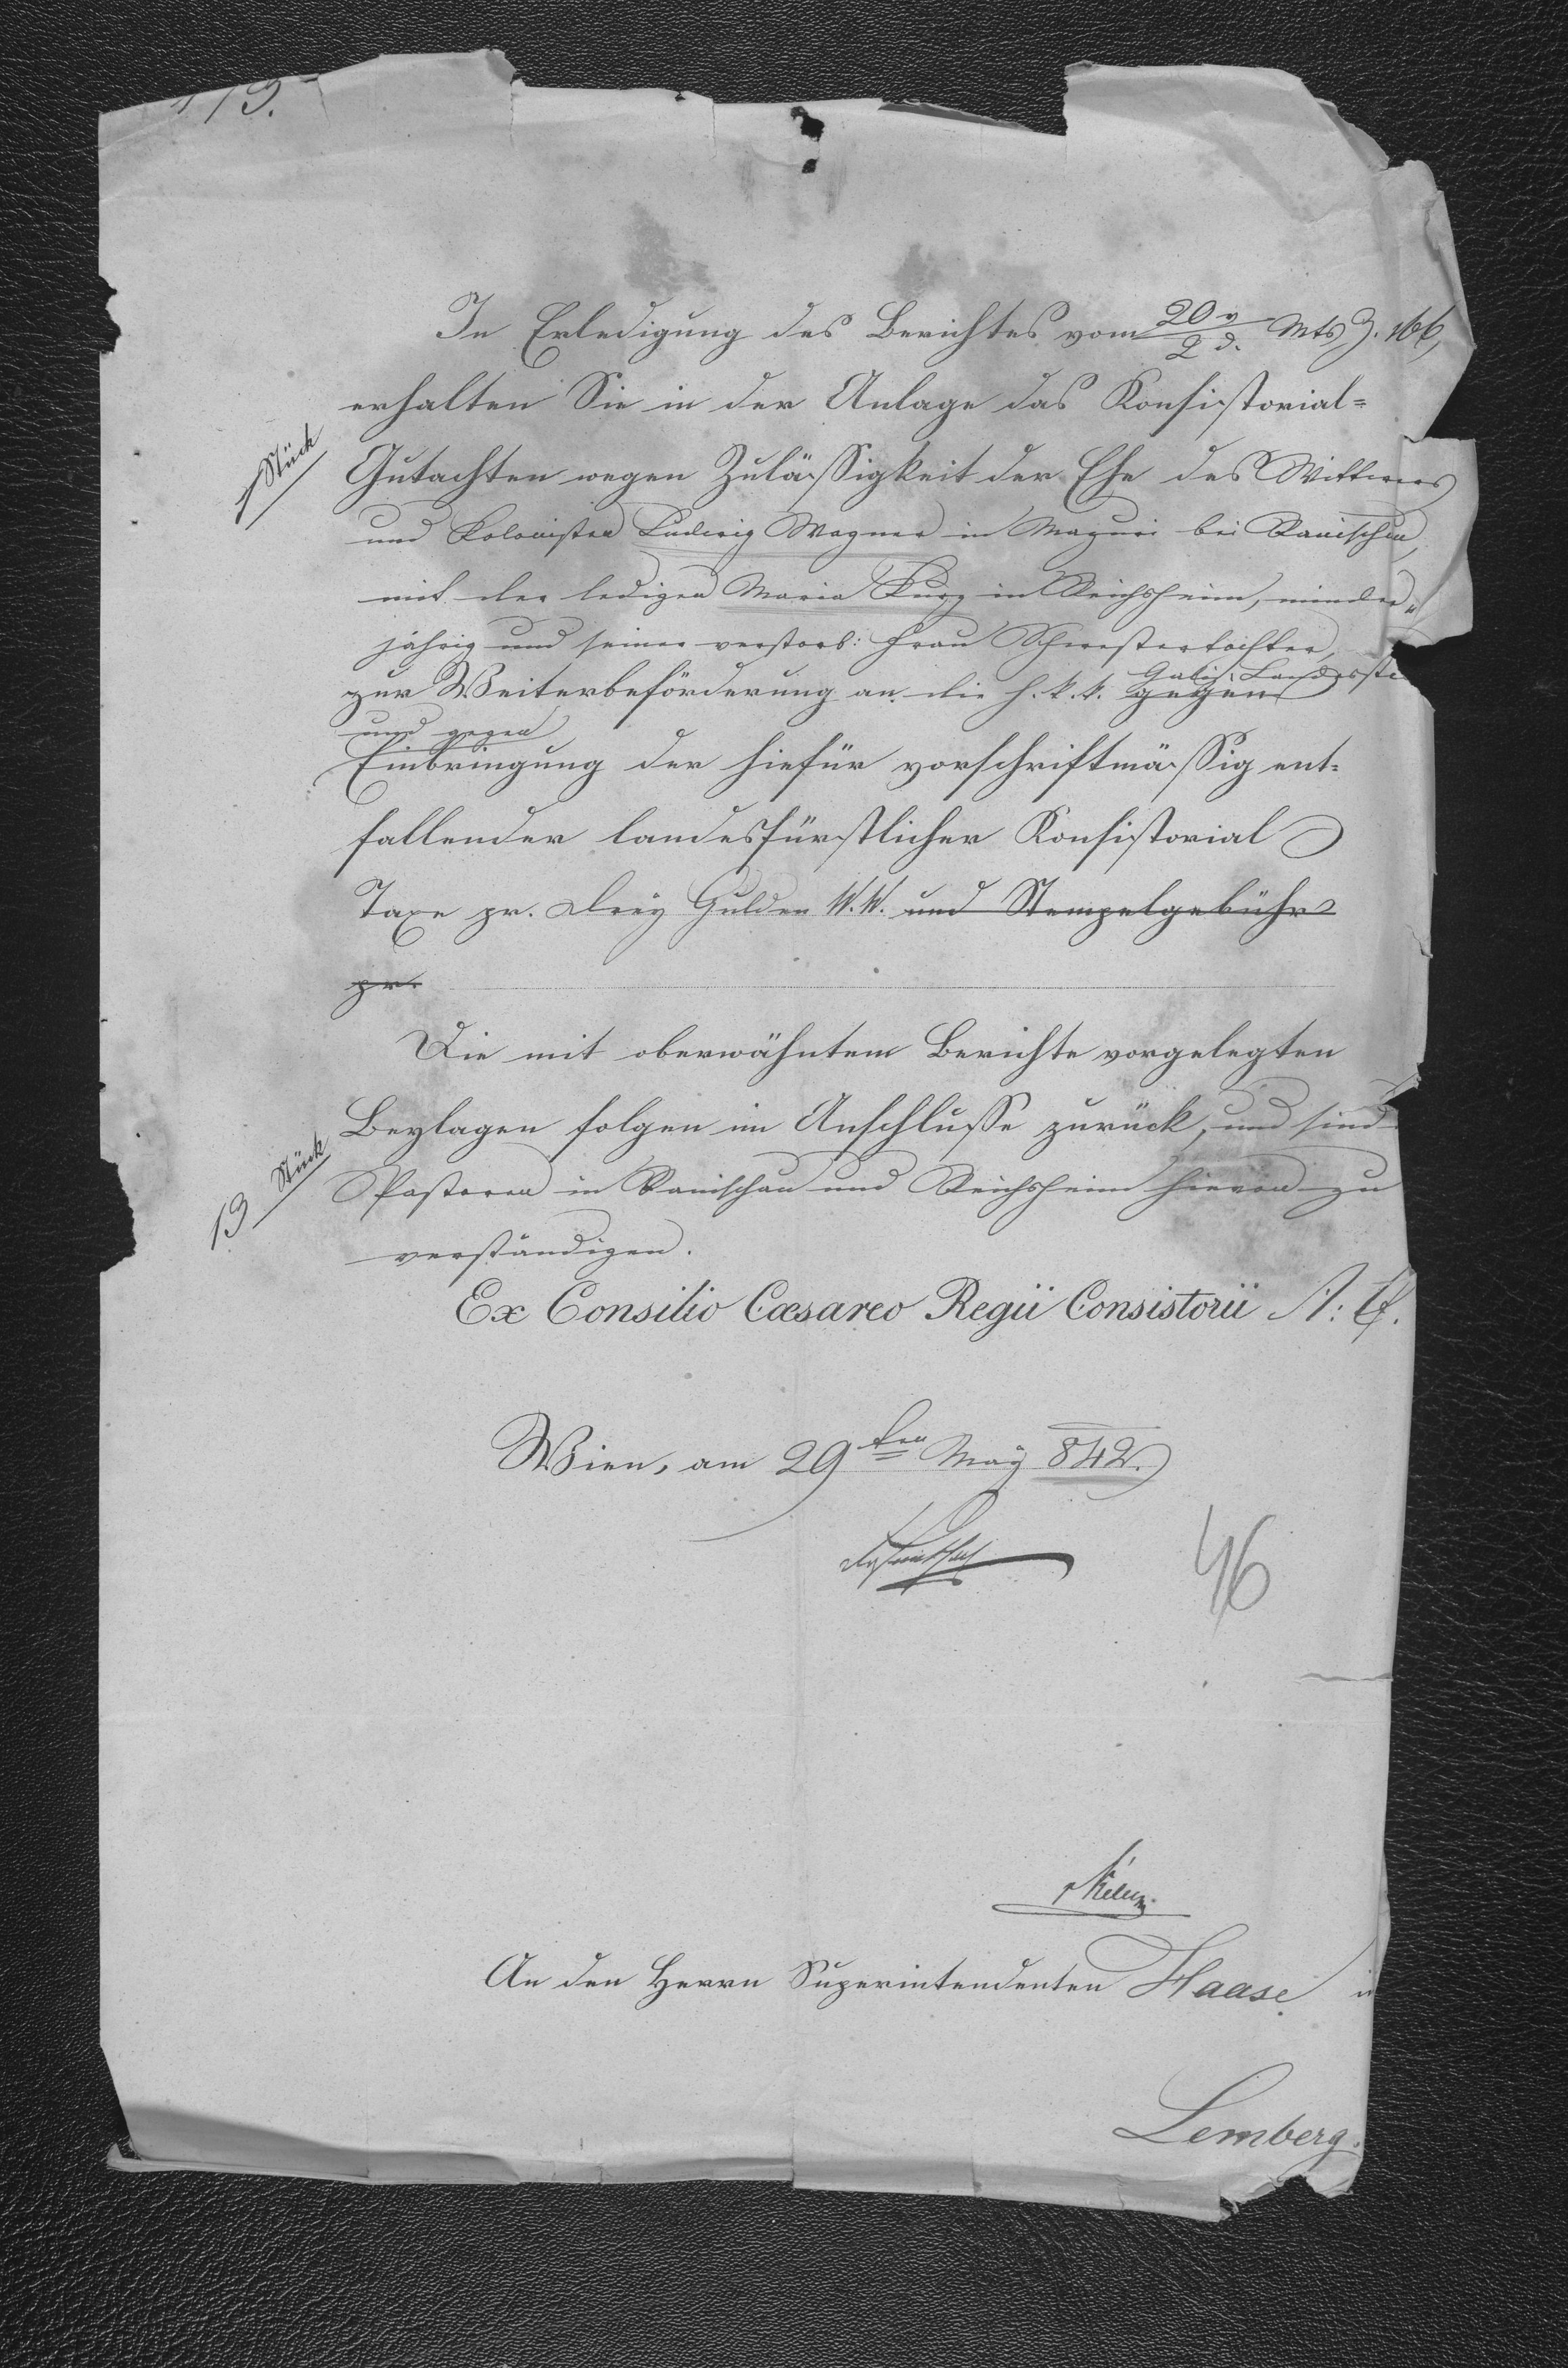 113.
In Erledigung des Berichtes vom 20 v / 2 d. Mts Z. 166,
erhalten Sie in der Anlage das Konsistorial=
1 Stück
Gutachten wegen Zulässigkeit der Ehe des Wittwers
und Kolonisten Ludwig Wagner in Mazuri bei Ranischau,
mit der ledigen Maria Kurz in Reichsheim, minder„
jährig und seiner verstorb: Frau Schwestertochter,
Galiz: Landesste
zur Weiterbeförderung an die h. k. k. gegen
und gegen
Einbringung der hiefür vorschriftmässig ent=
fallender landesfürstlicher Konsistorial
Taxe pr. Drey Gulden W. W. und Stempelgebühr
pr.
Die mit oberwähntem Berichte vorgelegten
Beylagen folgen im Anschlusse zurück, und sind
13 Stück
Pastoren in Ranischau und Reichsheim hievon zu
verständigen.
Ex Consilio Cæsareo Regii Consistorii A: C.
Wien, am 29ten May 842.
46
An den Herrn Superintendenten Haase in
Lemberg.